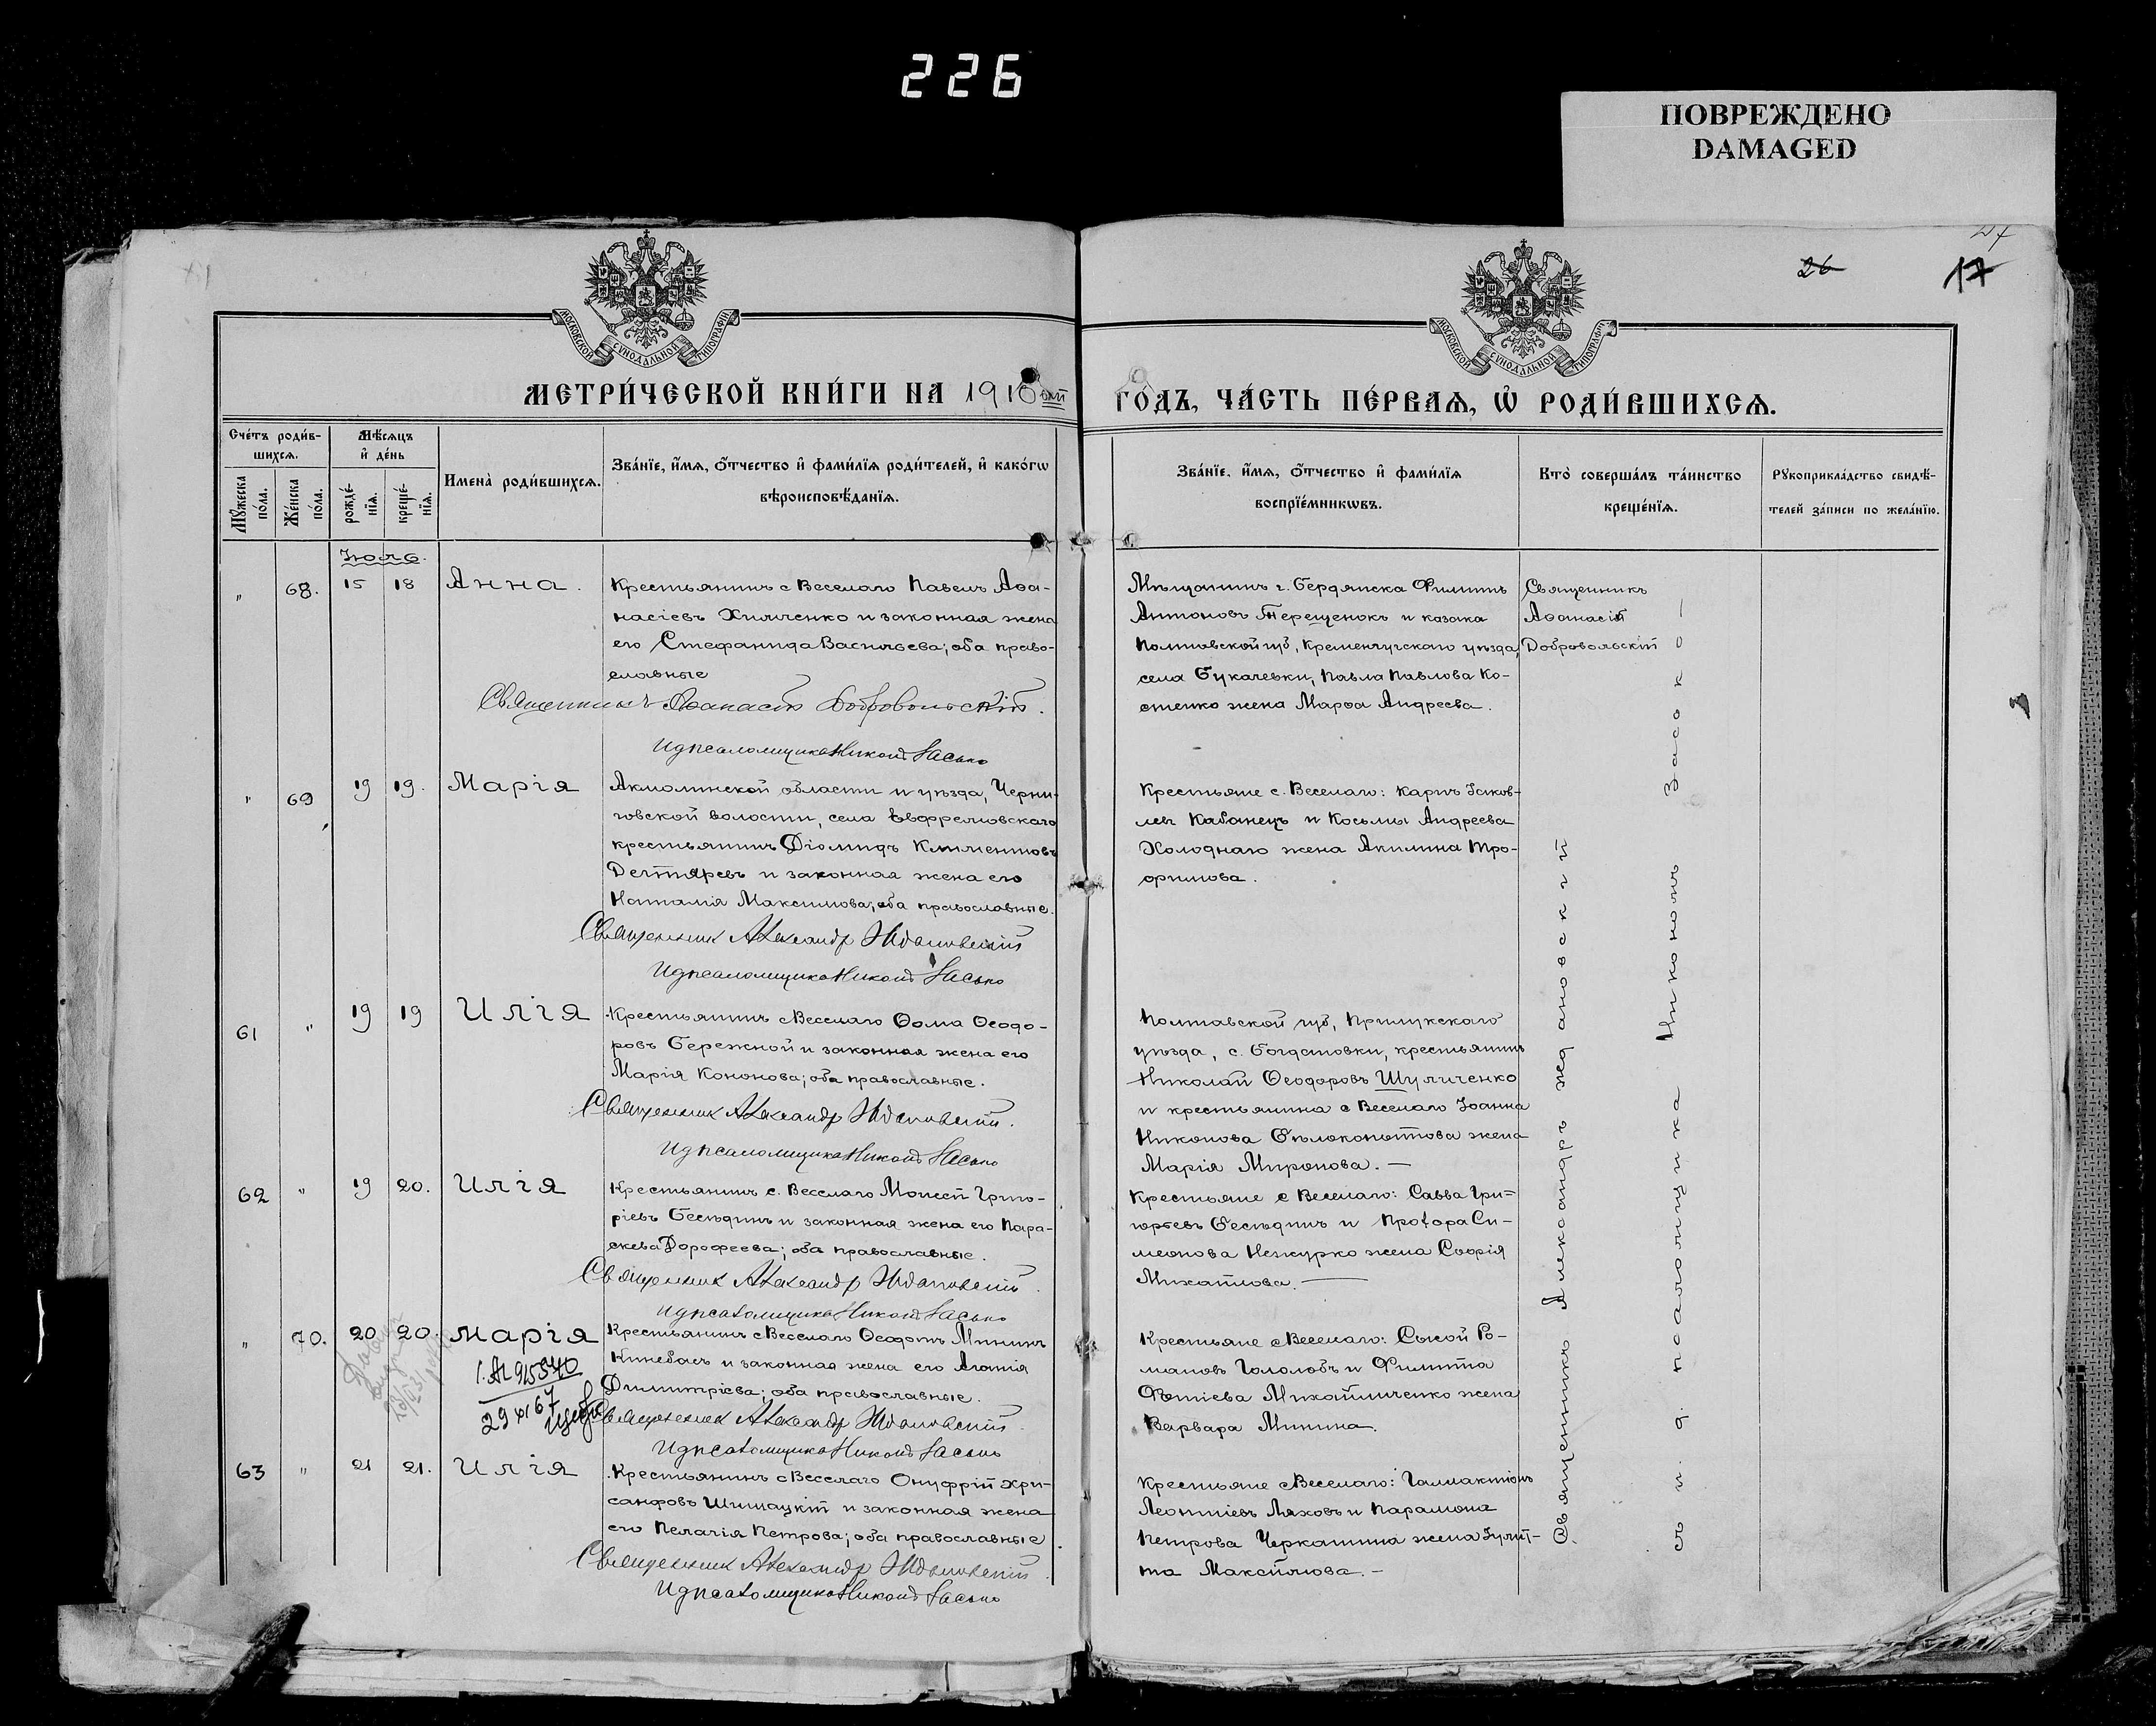 226
ПОВРЕЖДЕНО
DAMAGED
26
17
МОСКОВСКОЙ СѴНОДАЛЬНОЙ ТИПОГРАФІИ
МОСКОВСКОЙ СѴНОДАЛЬНОЙ ТИПОГРАФІИ
МЕТРИ́ЧЕСКОЙ КНИ́ГИ НА 1910
ГО́ДЪ, ЧА́СТЬ ПЕ́РВАѦ, Ѡ҆ РОДИ́ВШИХСѦ.
Сче́тъ роди́в-
шихсѧ.
Мѣ́сѧцъ
и҆ де́нь
Мꙋ́жеска
по́ла.
Же́нска
по́ла.
рожде́-
нїѧ.
креще́-
нїѧ.
Имена̀ роди́вшихсѧ.
Зва́нїе, и҆́мѧ, ѻ҆́тчество и҆ фами́лїѧ роди́телей, и҆ како́гѡ
вѣроисповѣ́данїѧ.
Зва́нїе, и҆́мѧ, ѻ҆́тчество и҆ фами́лїѧ
воспрїе́мникѡвъ.
Кто̀ соверша́лъ та́инство
креще́нїѧ.
Рꙋкоприкла́дство свидѣ́-
телей за́писи по жела́нїю.
Іюль.
" 68. 15 18 Анна.
Крестьянинъ с Веселаго Павелъ Аѳа-
насіевъ Химченко и законная жена
его Стефанида Васильева; оба право-
славные
Священникъ Аѳанасій Добровольскій.
И д псаломщика Никонъ Засько
Мѣщанинъ г. Бердянска Филиппъ
Антоновъ Терещенокъ и казака
Полтавской губ, Кременчугскаго уѣзда,
села Букачевки, Павла Павлова Ко-
стенко жена Марѳа Андреева.
Священникъ
Аѳанасій
Добровольскій
" 69 19 19. Марія
Акмолинской области и уѣзда, Черни-
говской волости, села Евфремовскаго
крестьянинъ Діомидъ Климентовъ
Дегтяревъ и законная жена его
Наталія Максимова; оба православные.
Священник Александр Ждановскій
И д псаломщика Никонъ Засько
Крестьяне с. Веселаго: Карпъ Іаков-
левъ Кабанецъ и Косьмы Андреева
Холоднаго жена Акилина Тро-
фимова.
61 " 19 19 Илія
Крестьянинъ с Веселаго Ѳома Ѳеодо-
ровъ Бережной и законная жена его
Марія Кононова; оба православные.
Священник Александр Ждановскій.
И д псаломщика Никонъ Засько
Полтавской губ, Прилукскаго
уѣзда, с. Богдановки, крестьянинъ
Николай Ѳеодоровъ Шуличенко
и крестьянина с Веселаго Іоанна
Никонова Бѣлокопытова жена
Марія Миронова. —
62 " 19 20. Илія
Крестьянинъ с. Веселаго Моисей Григо-
ріевъ Бесѣдинъ и законная жена его Пара-
скева Дорофеева; оба православные.
Священник Александр Ждановскій.
И д псаломщика Никонъ Засько
Крестьяне с Веселаго: Савва Гри-
горьевъ Бесѣдинъ и Прохора Си-
меонова Нежурко жена Софія
Михайлова. —
" 70. 20 20. Марія
Крестьянинъ с Веселаго Ѳеодотъ Мининъ
Кинебасъ и законная жена его Агафія
Димитріева; оба православные.
Священник Александр Ждановскій.
И д псаломщика Никонъ Засько
Крестьяне с Веселаго: Сысой Ро-
мановъ Гололобъ и Филиппа
Фотіева Михайличенко жена
Варвара Минина.
63 " 21 21. Илія
Крестьянинъ с Веселаго Онуфрій Хри-
санфовъ Шишацкій и законная жена
его Пелагія Петрова; оба православные
Священник Александр Ждановскій.
И д псаломщика Никонъ Засько
Крестьяне с Веселаго: Галлактіонъ
Леонтіевъ Ляховъ и Парамона
Петрова Черкашина жена Іулит-
та Максимова. —
Священникъ Александръ Ждановскій
съ и. д. псаломщика Никономъ Засько —